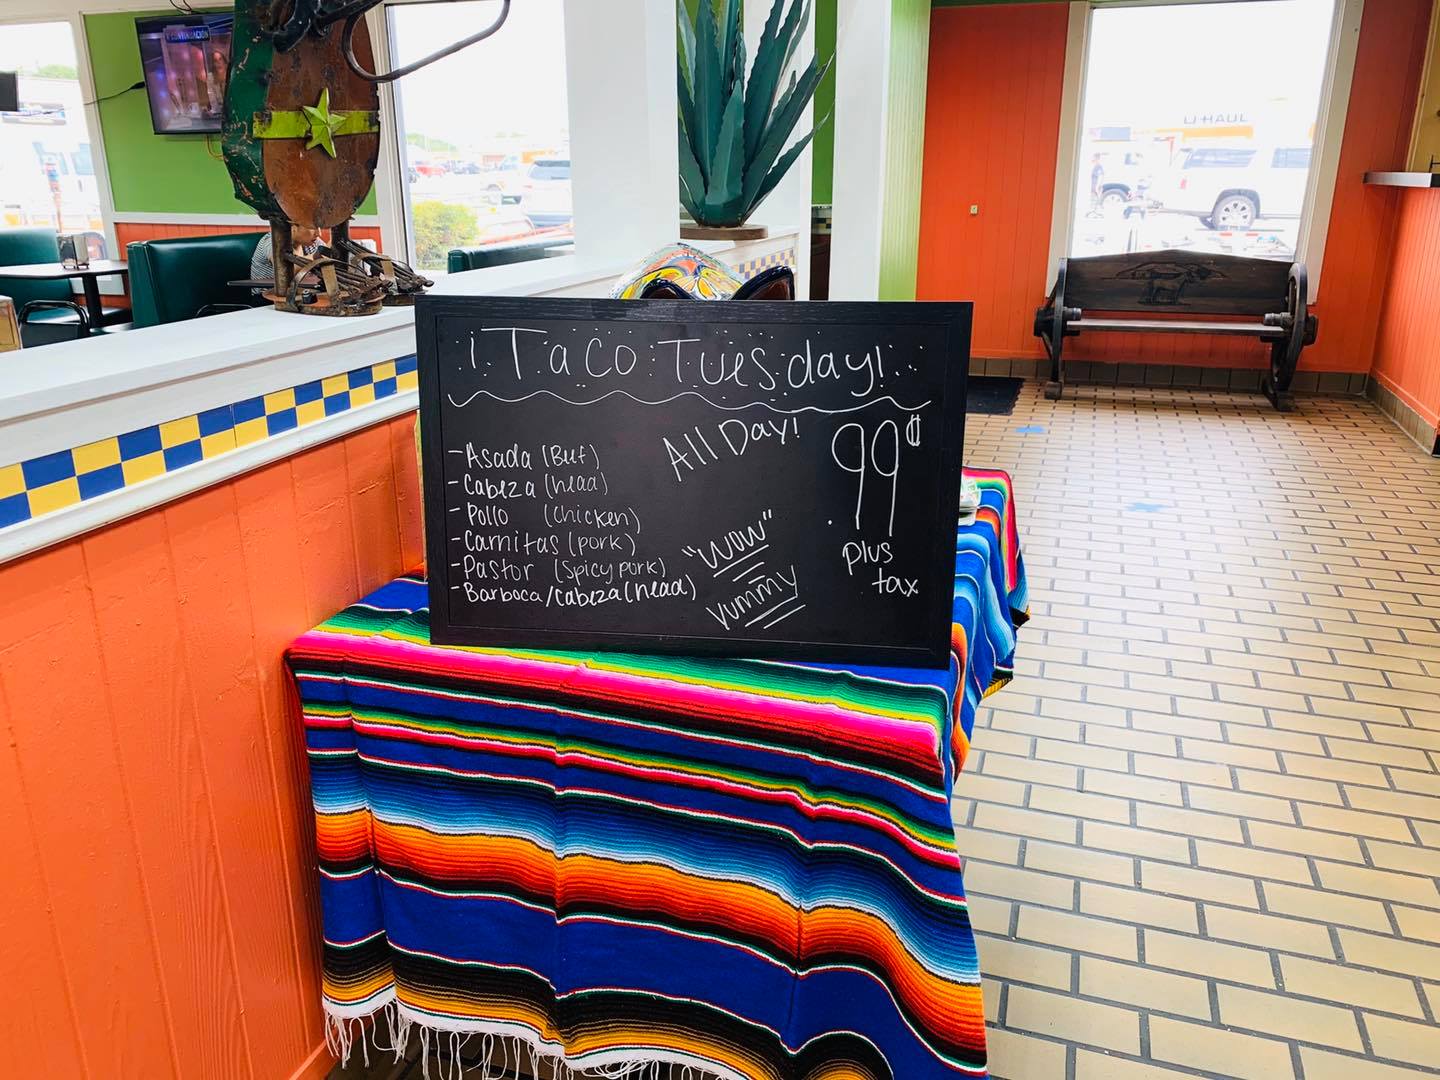 ¡Taco Tuesday!
All Day!
.99¢
plus
tax
- Asada (Beef)
- Cabeza (head)
- Pollo (chicken)
- Carnitas (pork)
- Pastor (Spicy pork)
- Barboca/Cabeza (head)
"WOW"
Yummy
U-HAUL